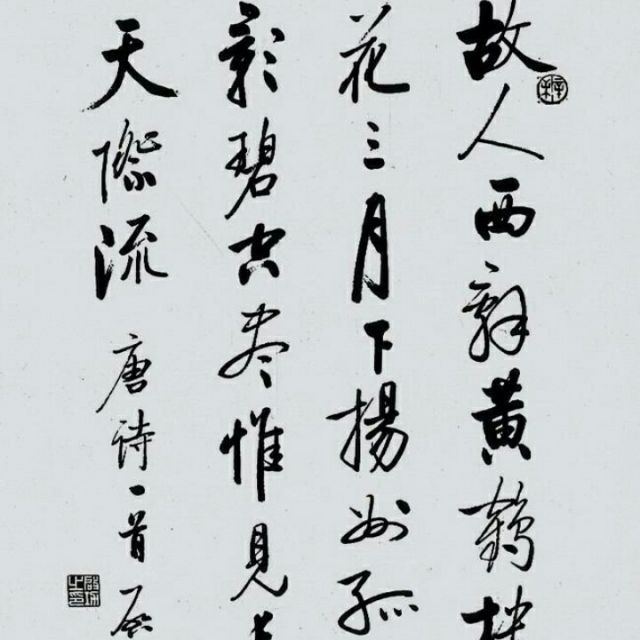 故人西辞黄鶴
花三月下揚州孤
影碧空尽惟見
天際流 唐诗一首